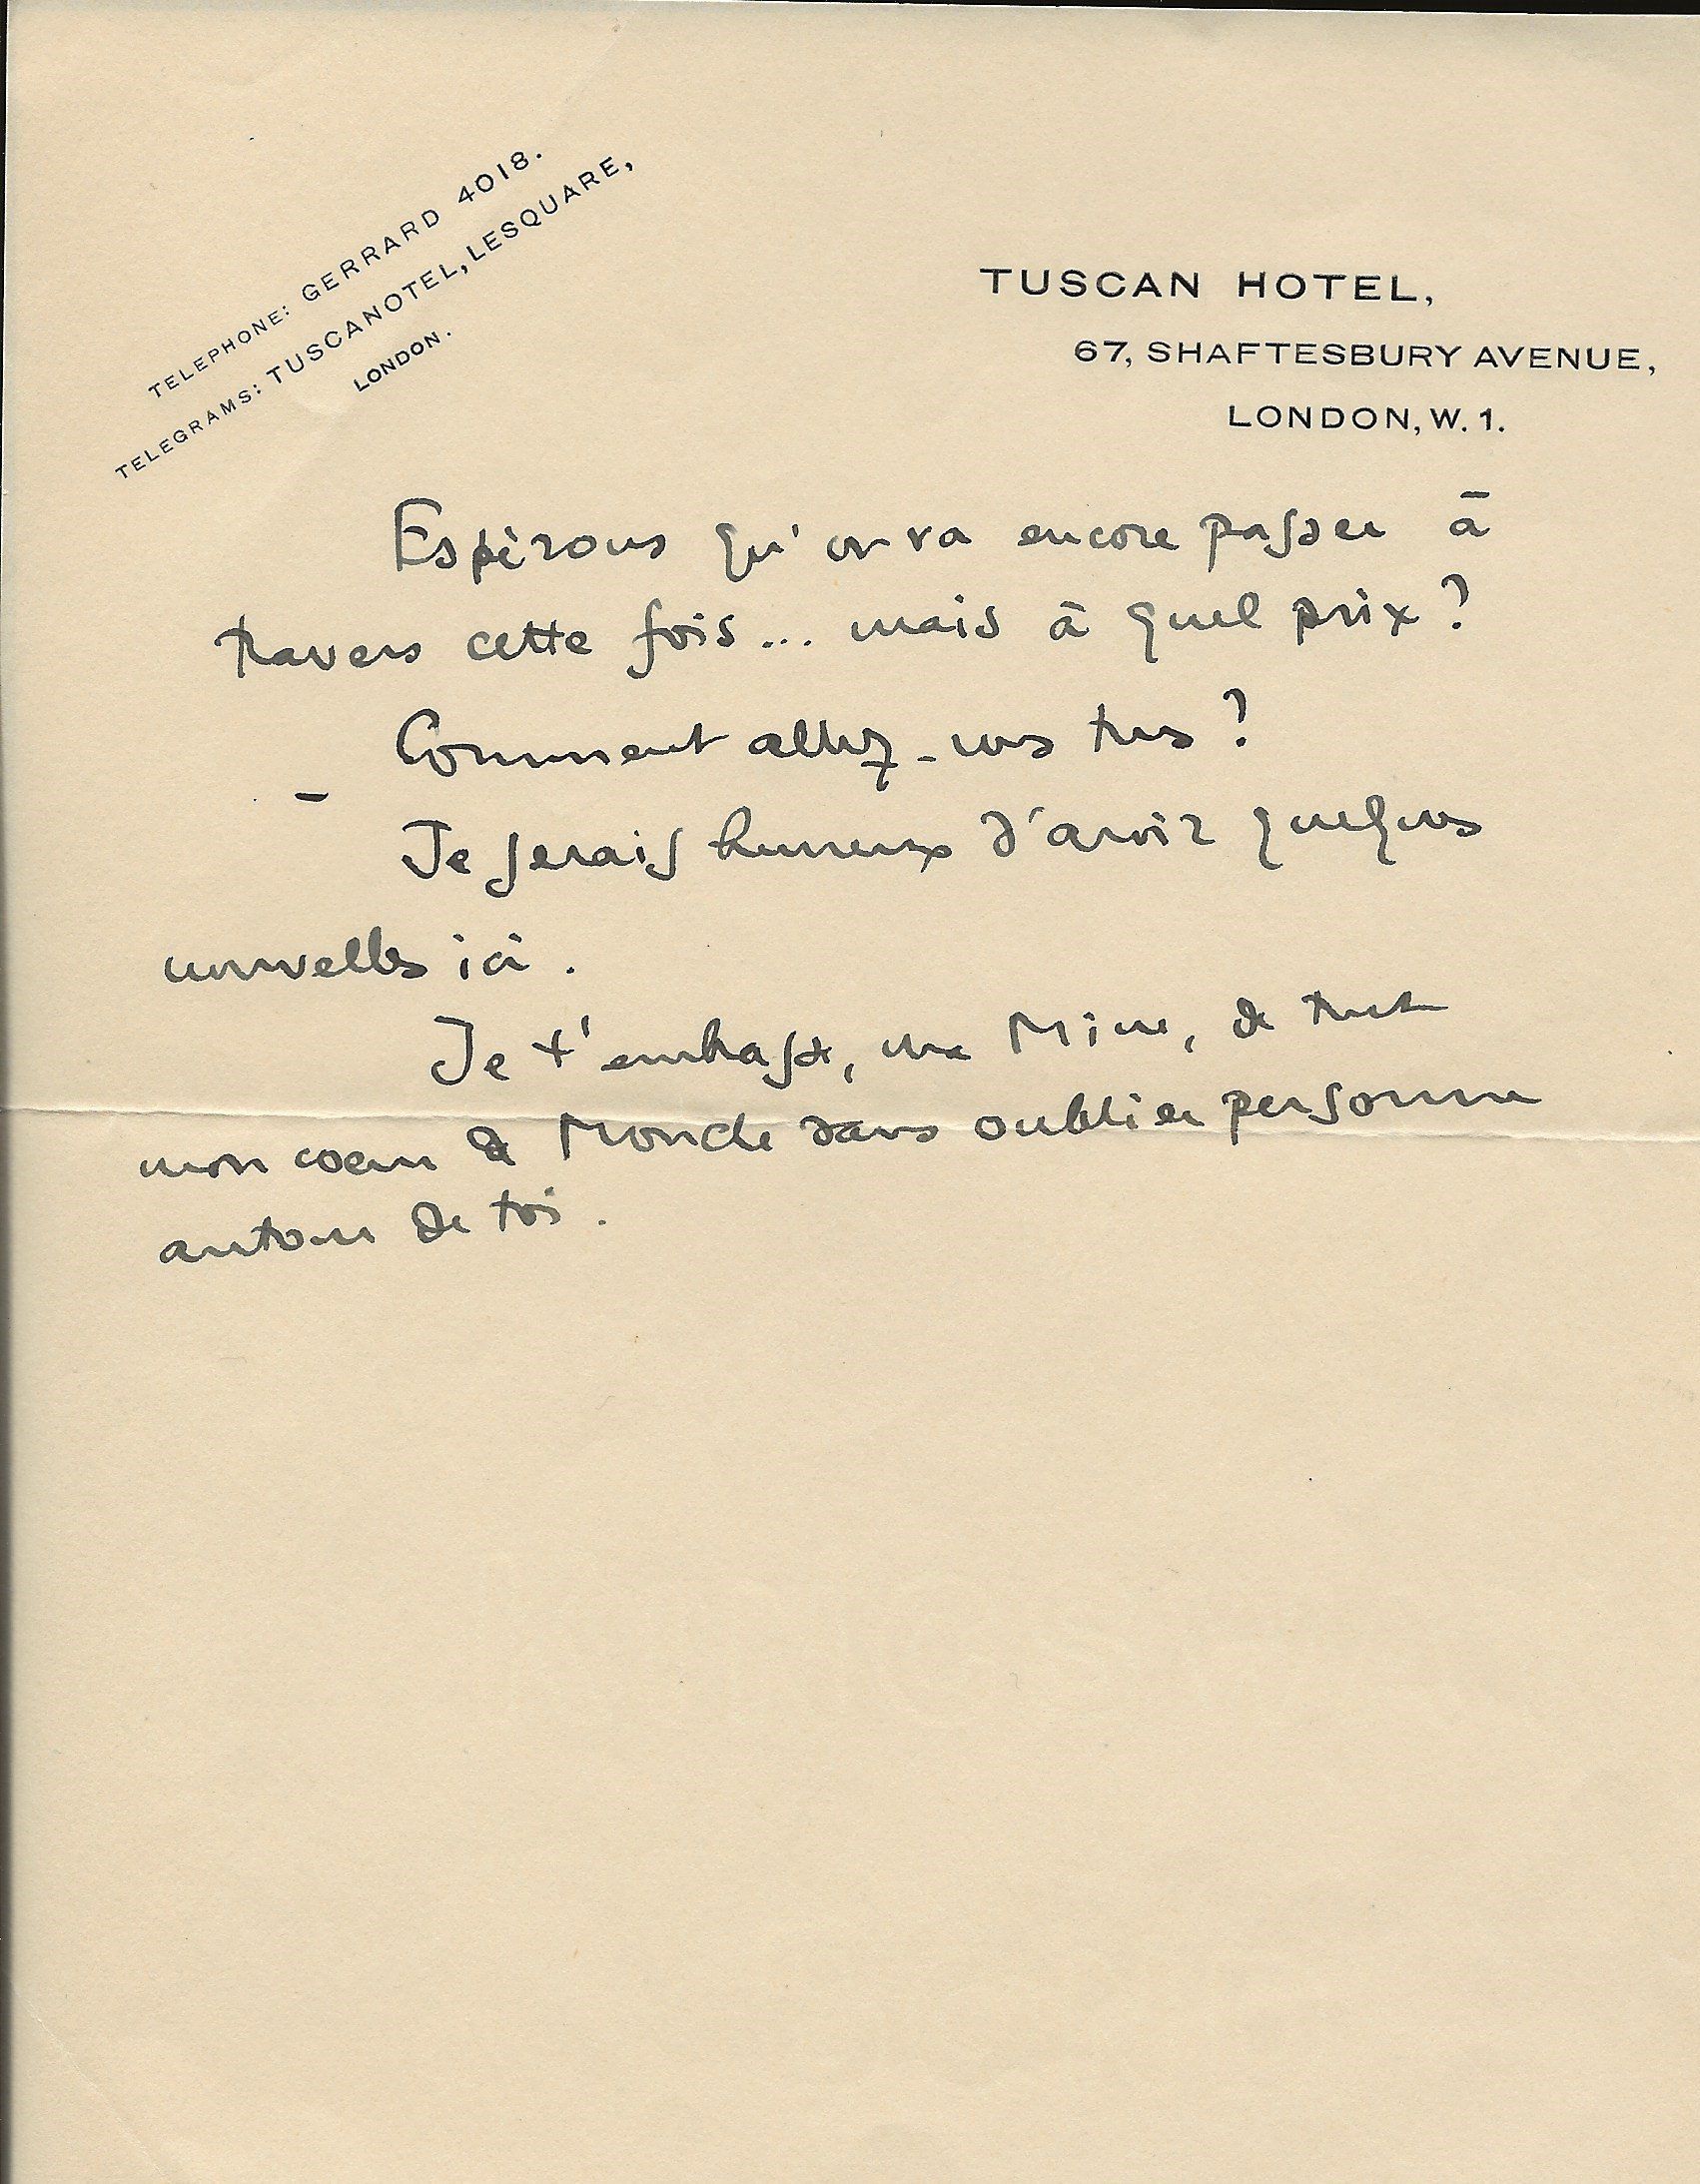 TELEPHONE: GERRARD 4018.
TELEGRAMS: TUSCANOTEL, LESQUARE,
LONDON.
TUSCAN HOTEL,
67, SHAFTESBURY AVENUE,
LONDON, W. 1.
Espérons qu'on va encore passer à
travers cette fois... mais à quel prix?
Comment allez-vous tous?
Je serais heureux d'avoir quelques
nouvelles ici.
Je t'embrasse, ma Mine, de tout
mon coeur & Monde sans oublier personne
autour de toi.